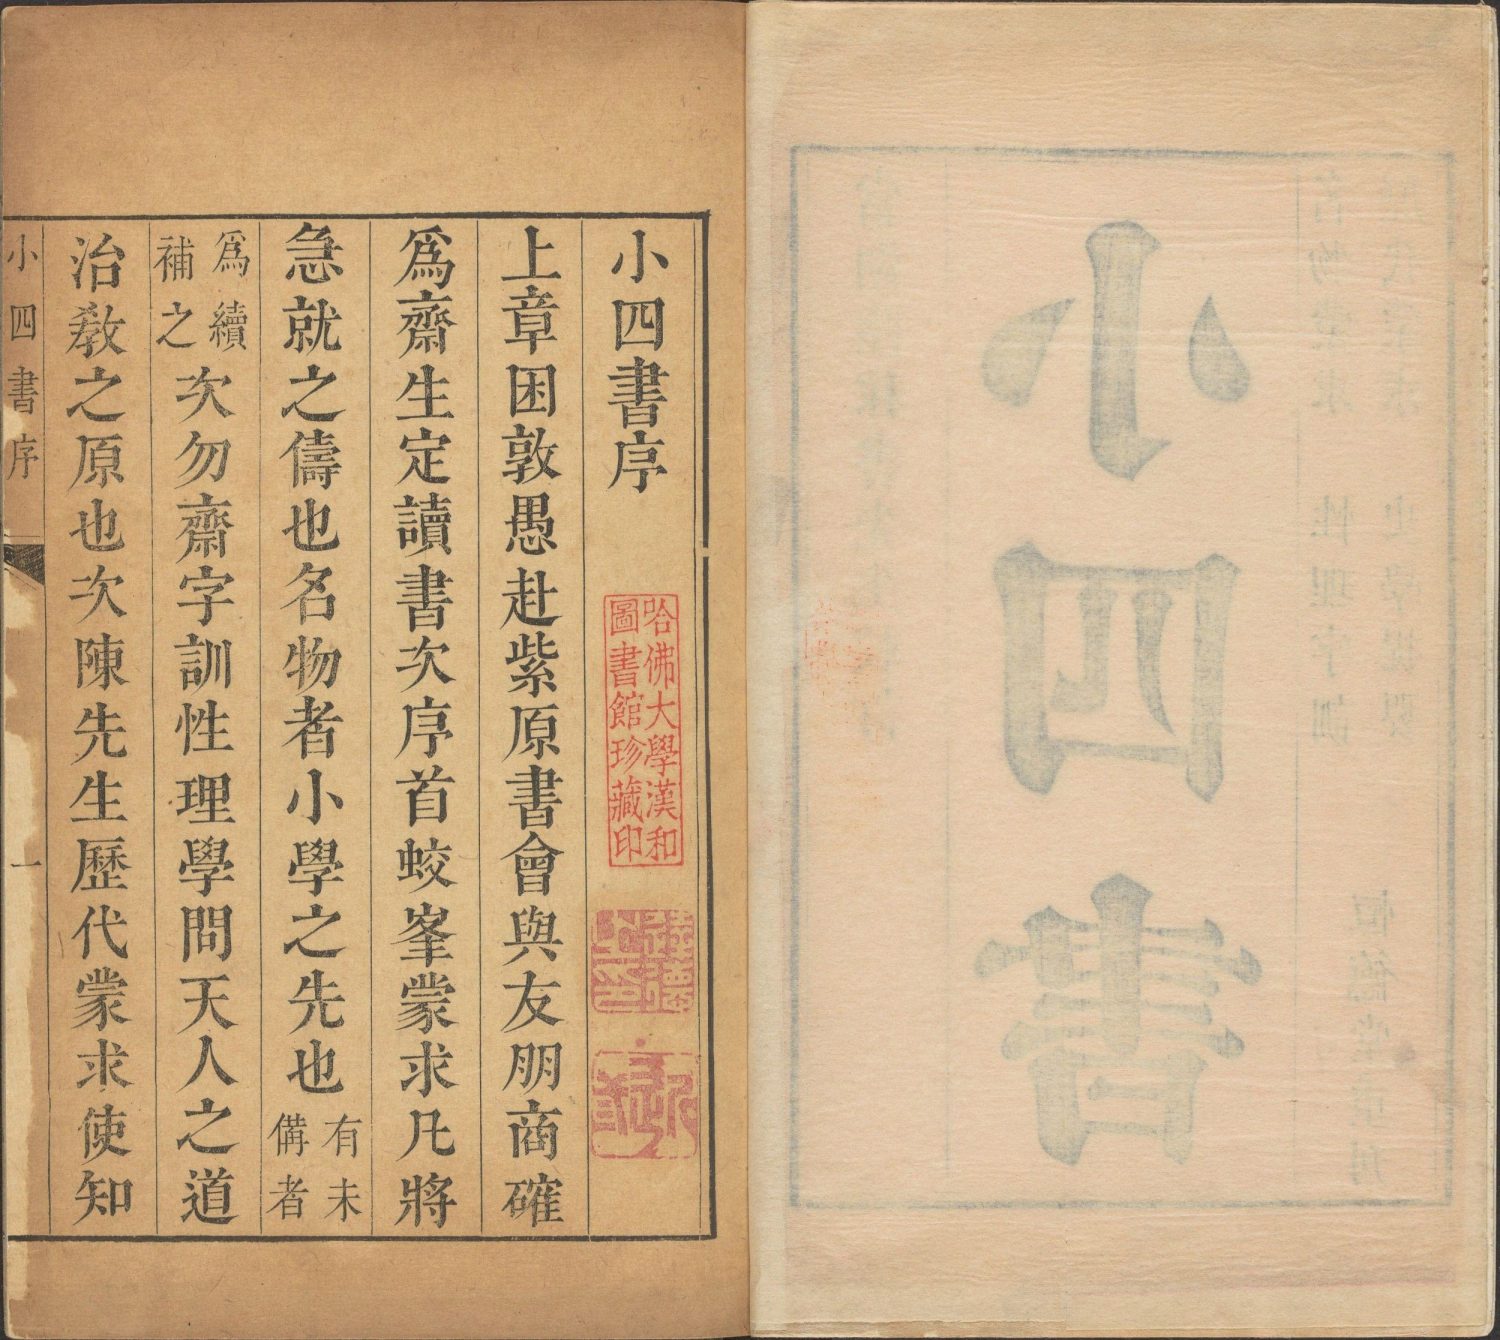 小四書
名物蒙求 性理字訓
歷代蒙求 史學提要
小四書序
哈佛大學漢和
圖書館珍藏印
上章困敦愚赴紫原書會與友朋商確
爲齋生定讀書次序首蛟峯蒙求凡將
急就之儔也名物者小學之先也有未備者
爲續補之次勿齋字訓性理學問天人之道
治敎之原也次陳先生歷代蒙求使知
小四書序 一